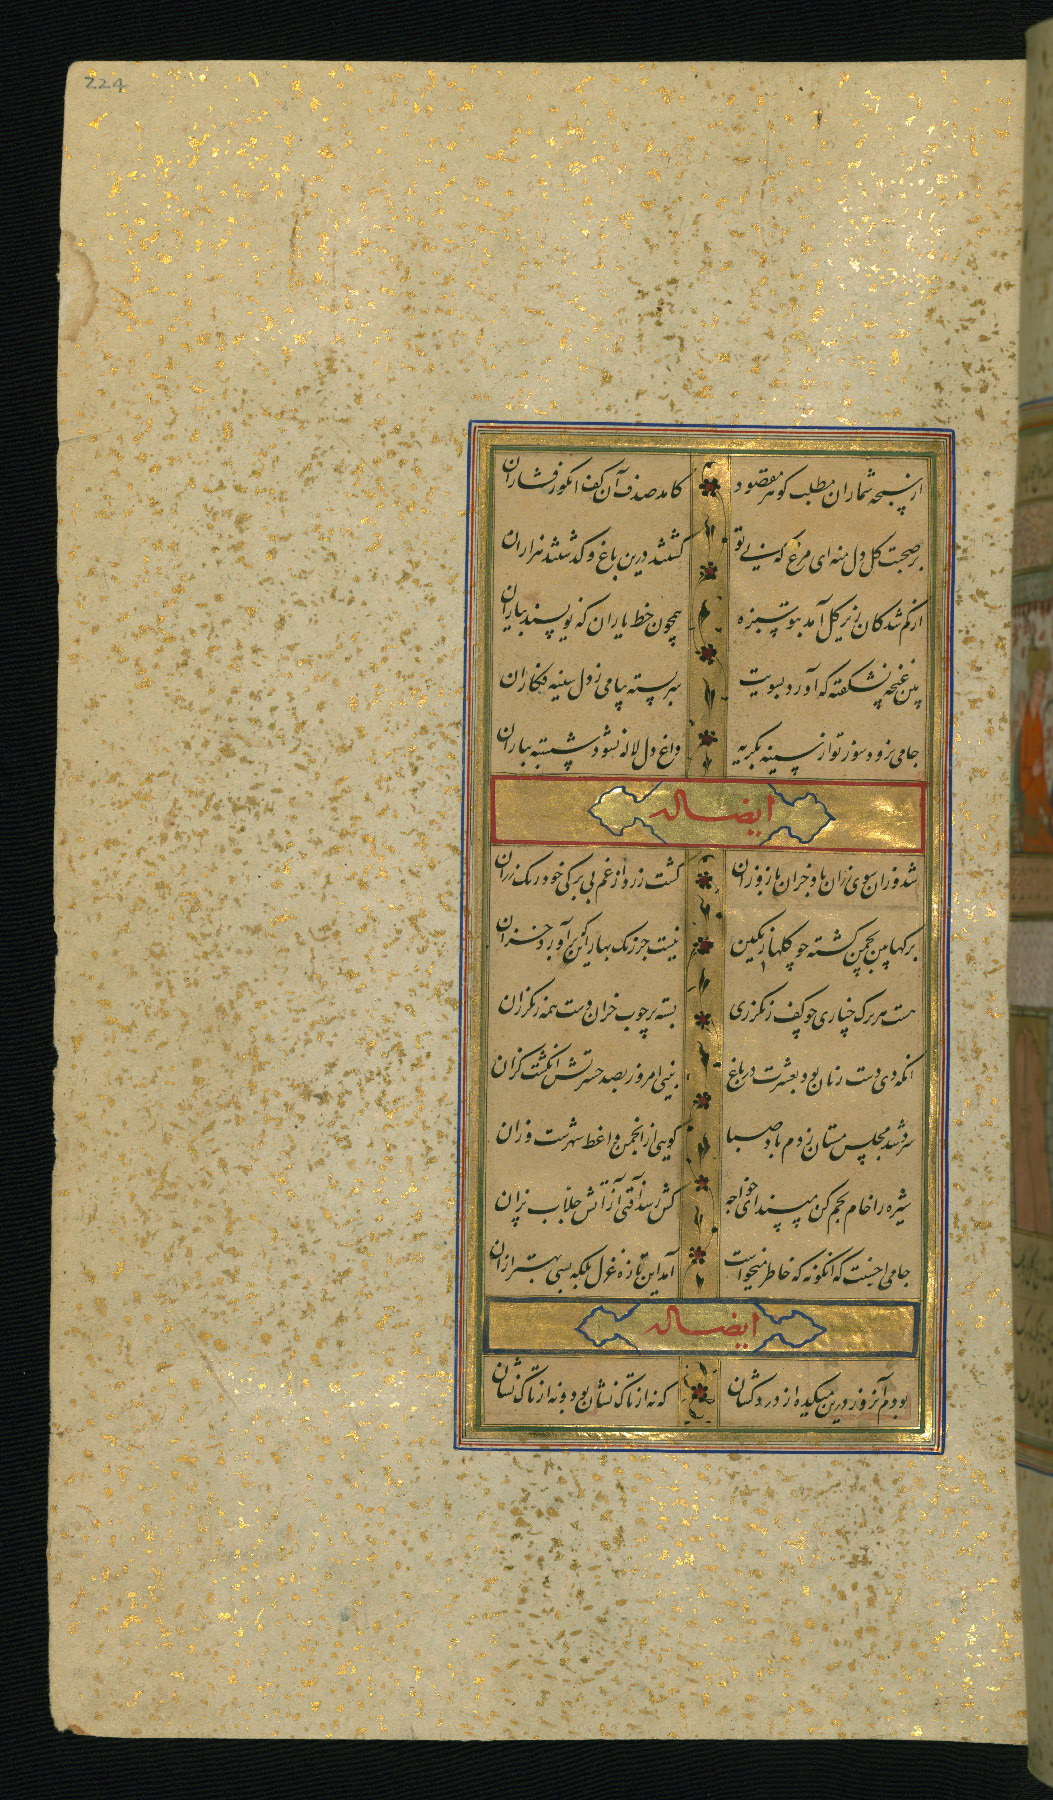 224
از سبحه شماران مطلب گوهر مقصود کامد صدف آن کف انگور فشاران
بر صحبت گل دل منه ای مرغ که بی تو گشتند درین باغ و گذشتند هزاران
از گم شدگان زیر گل آمد بتو سبزه همچون خط یاران که نویسند بیاران
بین غنچه نشکفته که آورد بسویت سر بسته پیامی ز دل سینه فکاران
جامی نرود سوز تو از سینه بگریه داغ دل لاله نشود شسته بباران
ایضا له
شد وزان سوی رزان باد خزان باز وزان گشت زرد از غم بی برگی خود رنگ رزان
برگها بین بچمن گشته چو گلها رنگین نیست جز رنگ بهار آنکه برآورد خزان
هست هر برگ چناری چو کف رنگرزی بسته بر چوب خزان دست همه رنگرزان
آنکه دی دست زنان بود بعشرت در باغ بینی امروز بصد حسرتش انگشت گزان
سرد شد مجلس مستان ز دم باد صبا گویی از انجمن واعظ شهرست وزان
شیره را خام بخم کن مپسند ای خواجه کش رسد آفتی از آتش جلاب پزان
جامی احسنت که آنگونه که خاطر میخواست آمد این تازه غزل بلکه بسی بهتر ازان
ایضا له
بودم آن روز درین میکده از درد کشان که نه از تاک نشان بود و نه از تاک نشان